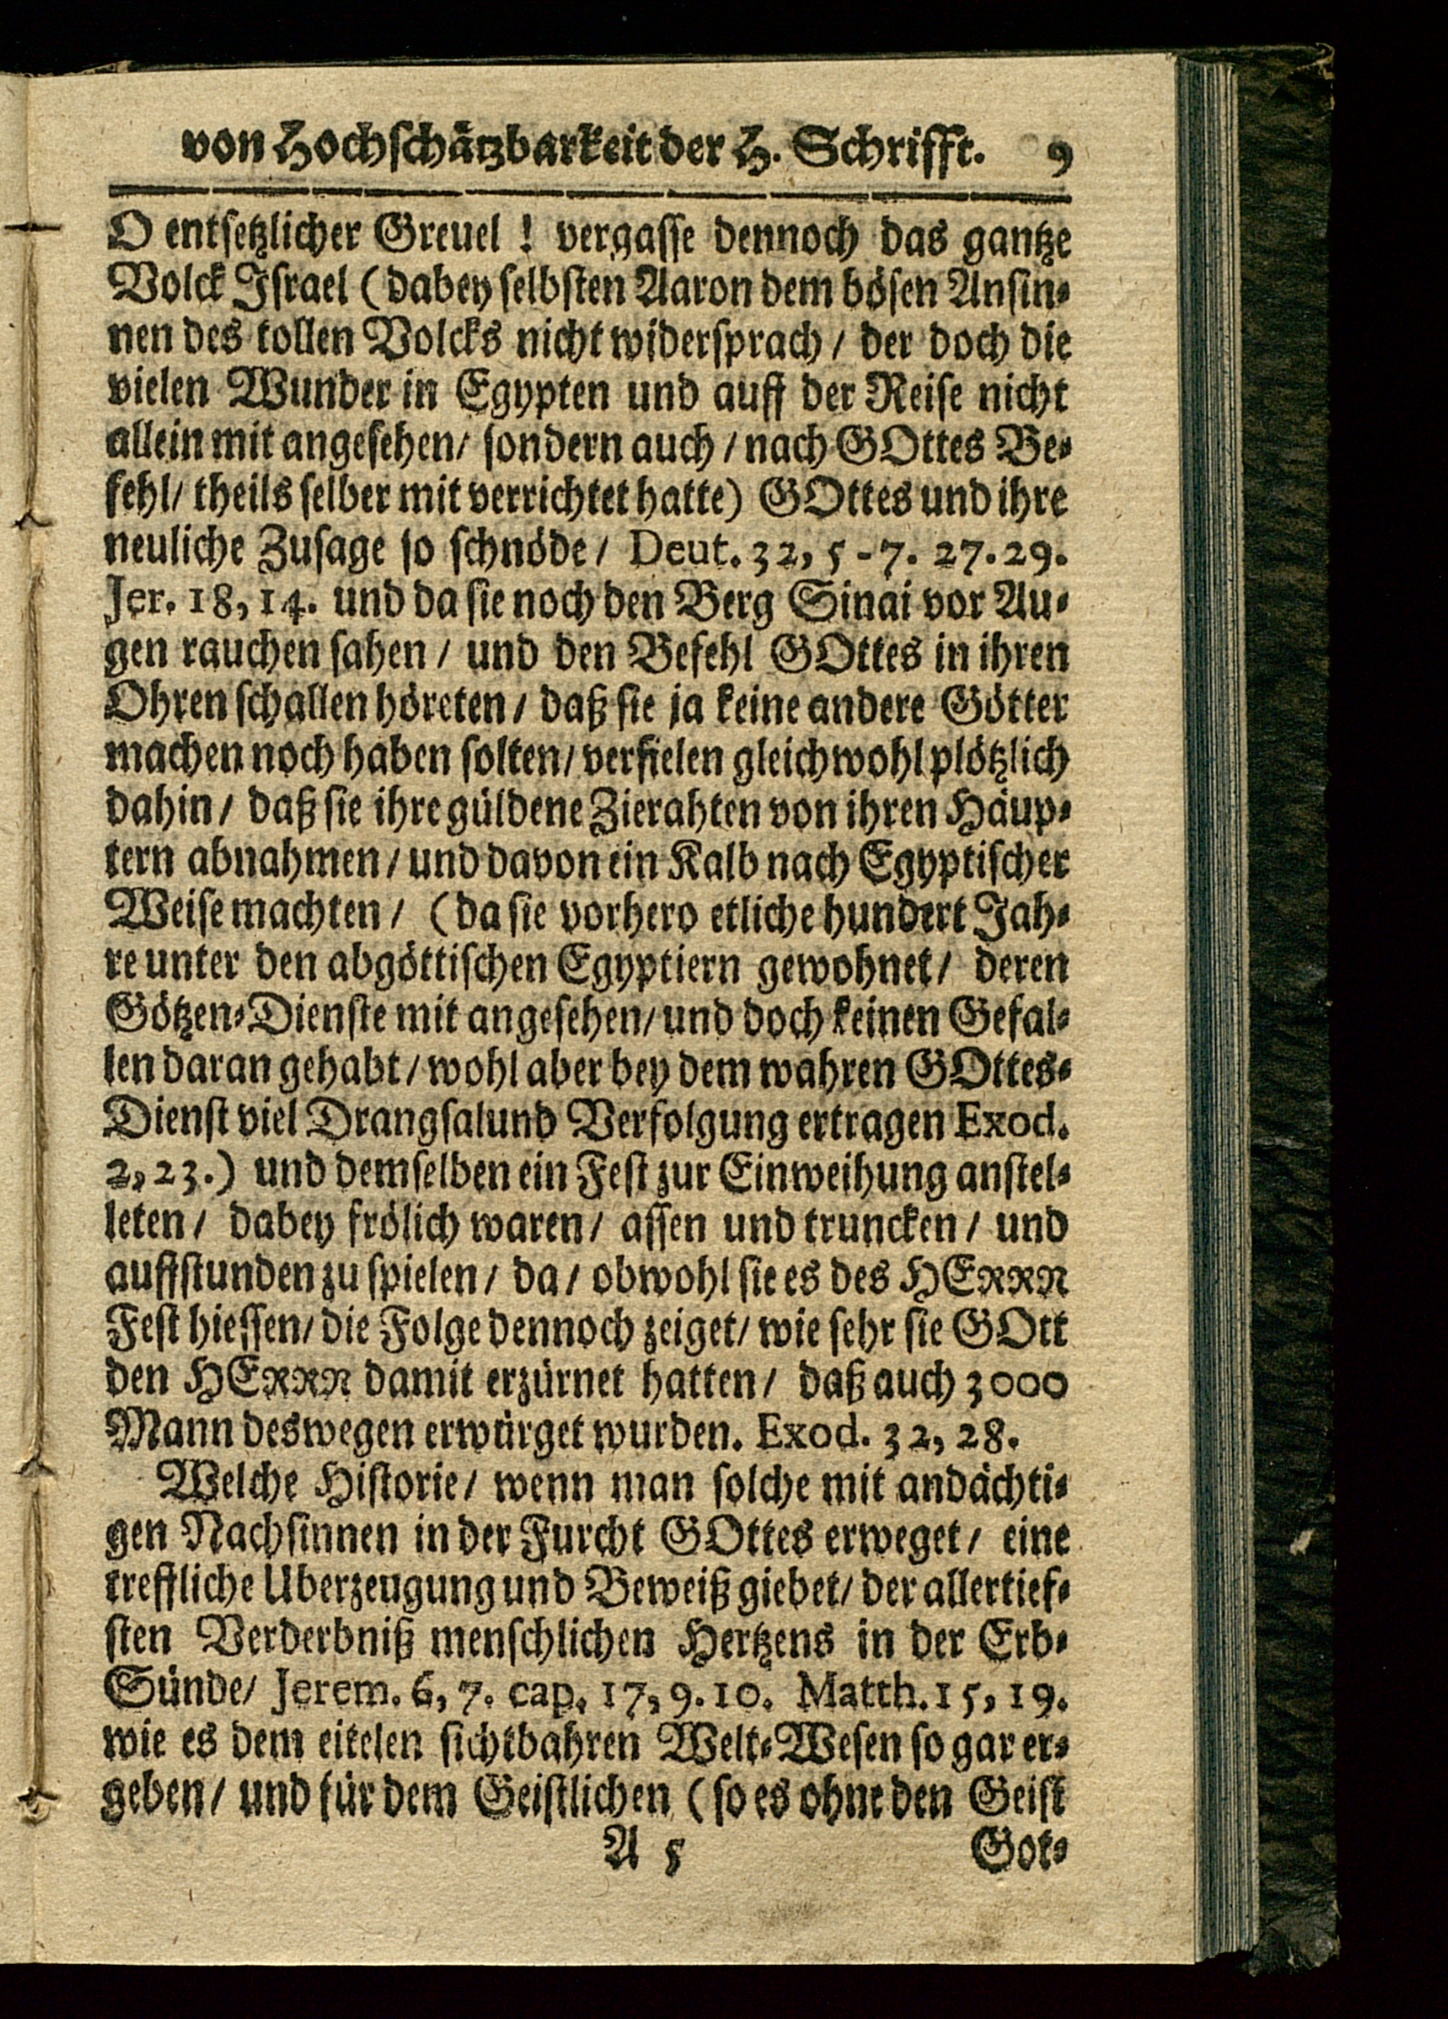 von Hochschätzbarkeit der H. Schrifft. 9
O entsetzlicher Greuel! vergasse dennoch das gantze
Volck Israel (dabey selbsten Aaron dem bösen Ansin-
nen des tollen Volcks nicht widersprach / der doch die
vielen Wunder in Egypten und auff der Reise nicht
allein mit angesehen / sondern auch / nach GOttes Be-
fehl / theils selber mit verrichtet hatte) GOttes und ihre
neuliche Zusage so schnöde / Deut. 32, 5-7. 27. 29.
Jer. 18, 14. und da sie noch den Berg Sinai vor Au-
gen rauchen sahen / und den Befehl GOttes in ihren
Ohren schallen höreten / daß sie ja keine andere Götter
machen noch haben solten / verfielen gleichwohl plötzlich
dahin / daß sie ihre güldene Zierahten von ihren Häup-
tern abnahmen / und davon ein Kalb nach Egyptischer
Weise machten / (da sie vorhero etliche hundert Jah-
re unter den abgöttischen Egyptiern gewohnet / deren
Götzen-Dienste mit angesehen / und doch keinen Gefal-
len daran gehabt / wohl aber bey dem wahren GOttes-
Dienst viel Drangsal und Verfolgung ertragen Exod.
2, 23.) und demselben ein Fest zur Einweihung anstel-
leten / dabey frölich waren / assen und truncken / und
auffstunden zu spielen / da / obwohl sie es des HERRN
Fest hiessen / die Folge dennoch zeiget / wie sehr sie GOtt
den HERRN damit erzürnet hatten / daß auch 3000
Mann deswegen erwürget wurden. Exod. 32, 28.
Welche Historie / wenn man solche mit andächti-
gen Nachsinnen in der Furcht GOttes erweget / eine
treffliche Uberzeugung und Beweiß giebet / der allertief-
sten Verderbniß menschlichen Hertzens in der Erb-
Sünde / Jerem. 6, 7. cap. 17, 9. 10. Matth. 15, 19.
wie es dem eitelen sichtbahren Welt-Wesen so gar er-
geben / und für dem Geistlichen (so es ohne den Geist
A 5 Got-